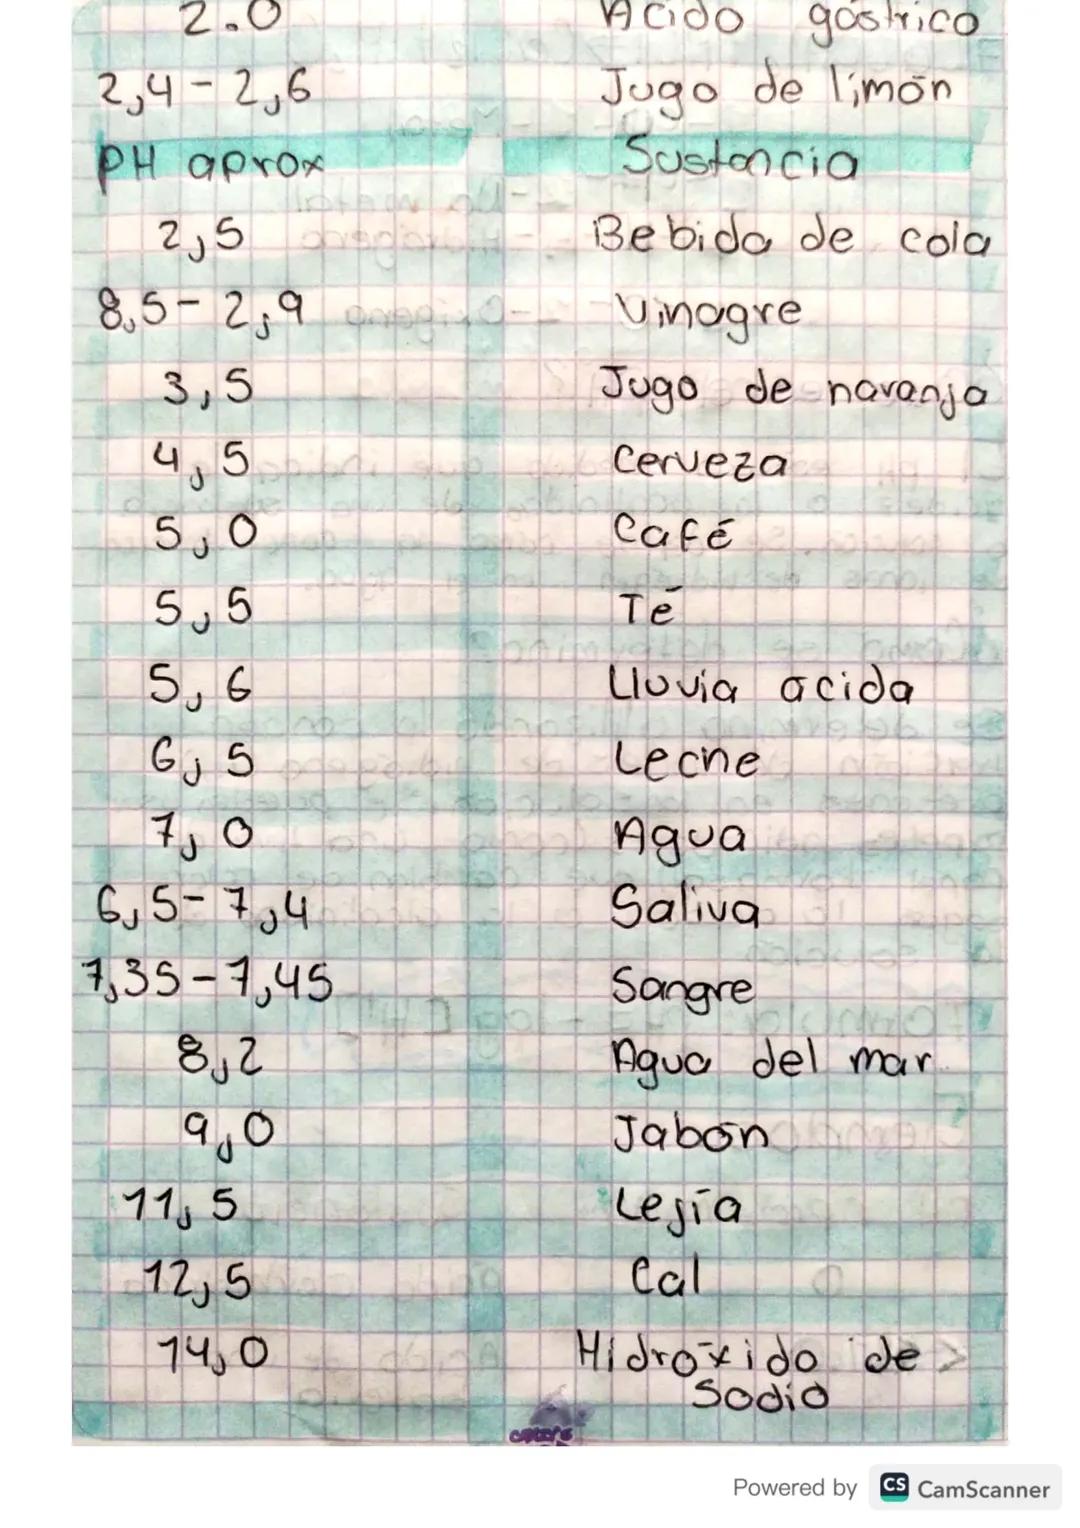 2.0 Acido gástrico
2,4 - 2,6 Jugo de limón
PH aprox Sustancia
2,5 Bebida de cola
8,5 - 2,9 Vinagre
3,5 Jugo de naranja
4,5 Cerveza
5,0 Café
5,5 Té
5,6 Lluvia ácida
6,5 Leche
7,0 Agua
6,5 - 7,4 Saliva
7,35 - 7,45 Sangre
8,2 Agua del mar
9,0 Jabón
11,5 Lejía
12,5 Cal
14,0 Hidróxido de
Sodio
Powered by CS CamScanner